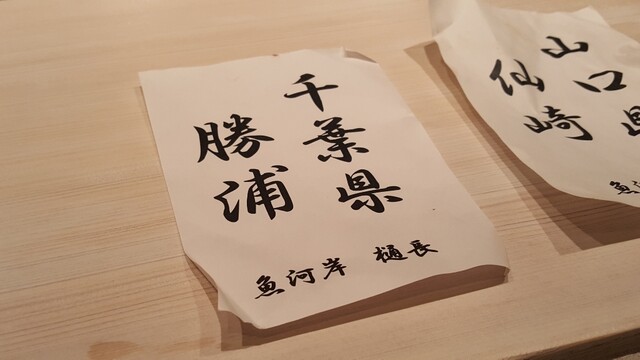 千葉県
勝浦
魚河岸 樋長
山口県
仙崎
魚